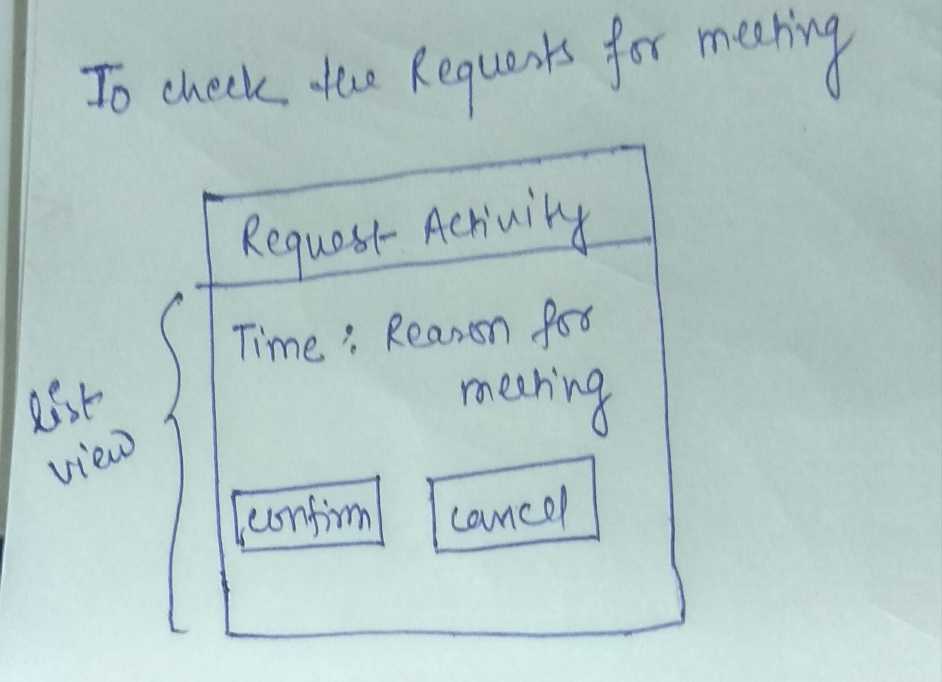 To check the Requests for meeting
Request Activity
Time : Reason for
meeting
list
view
confirm cancel